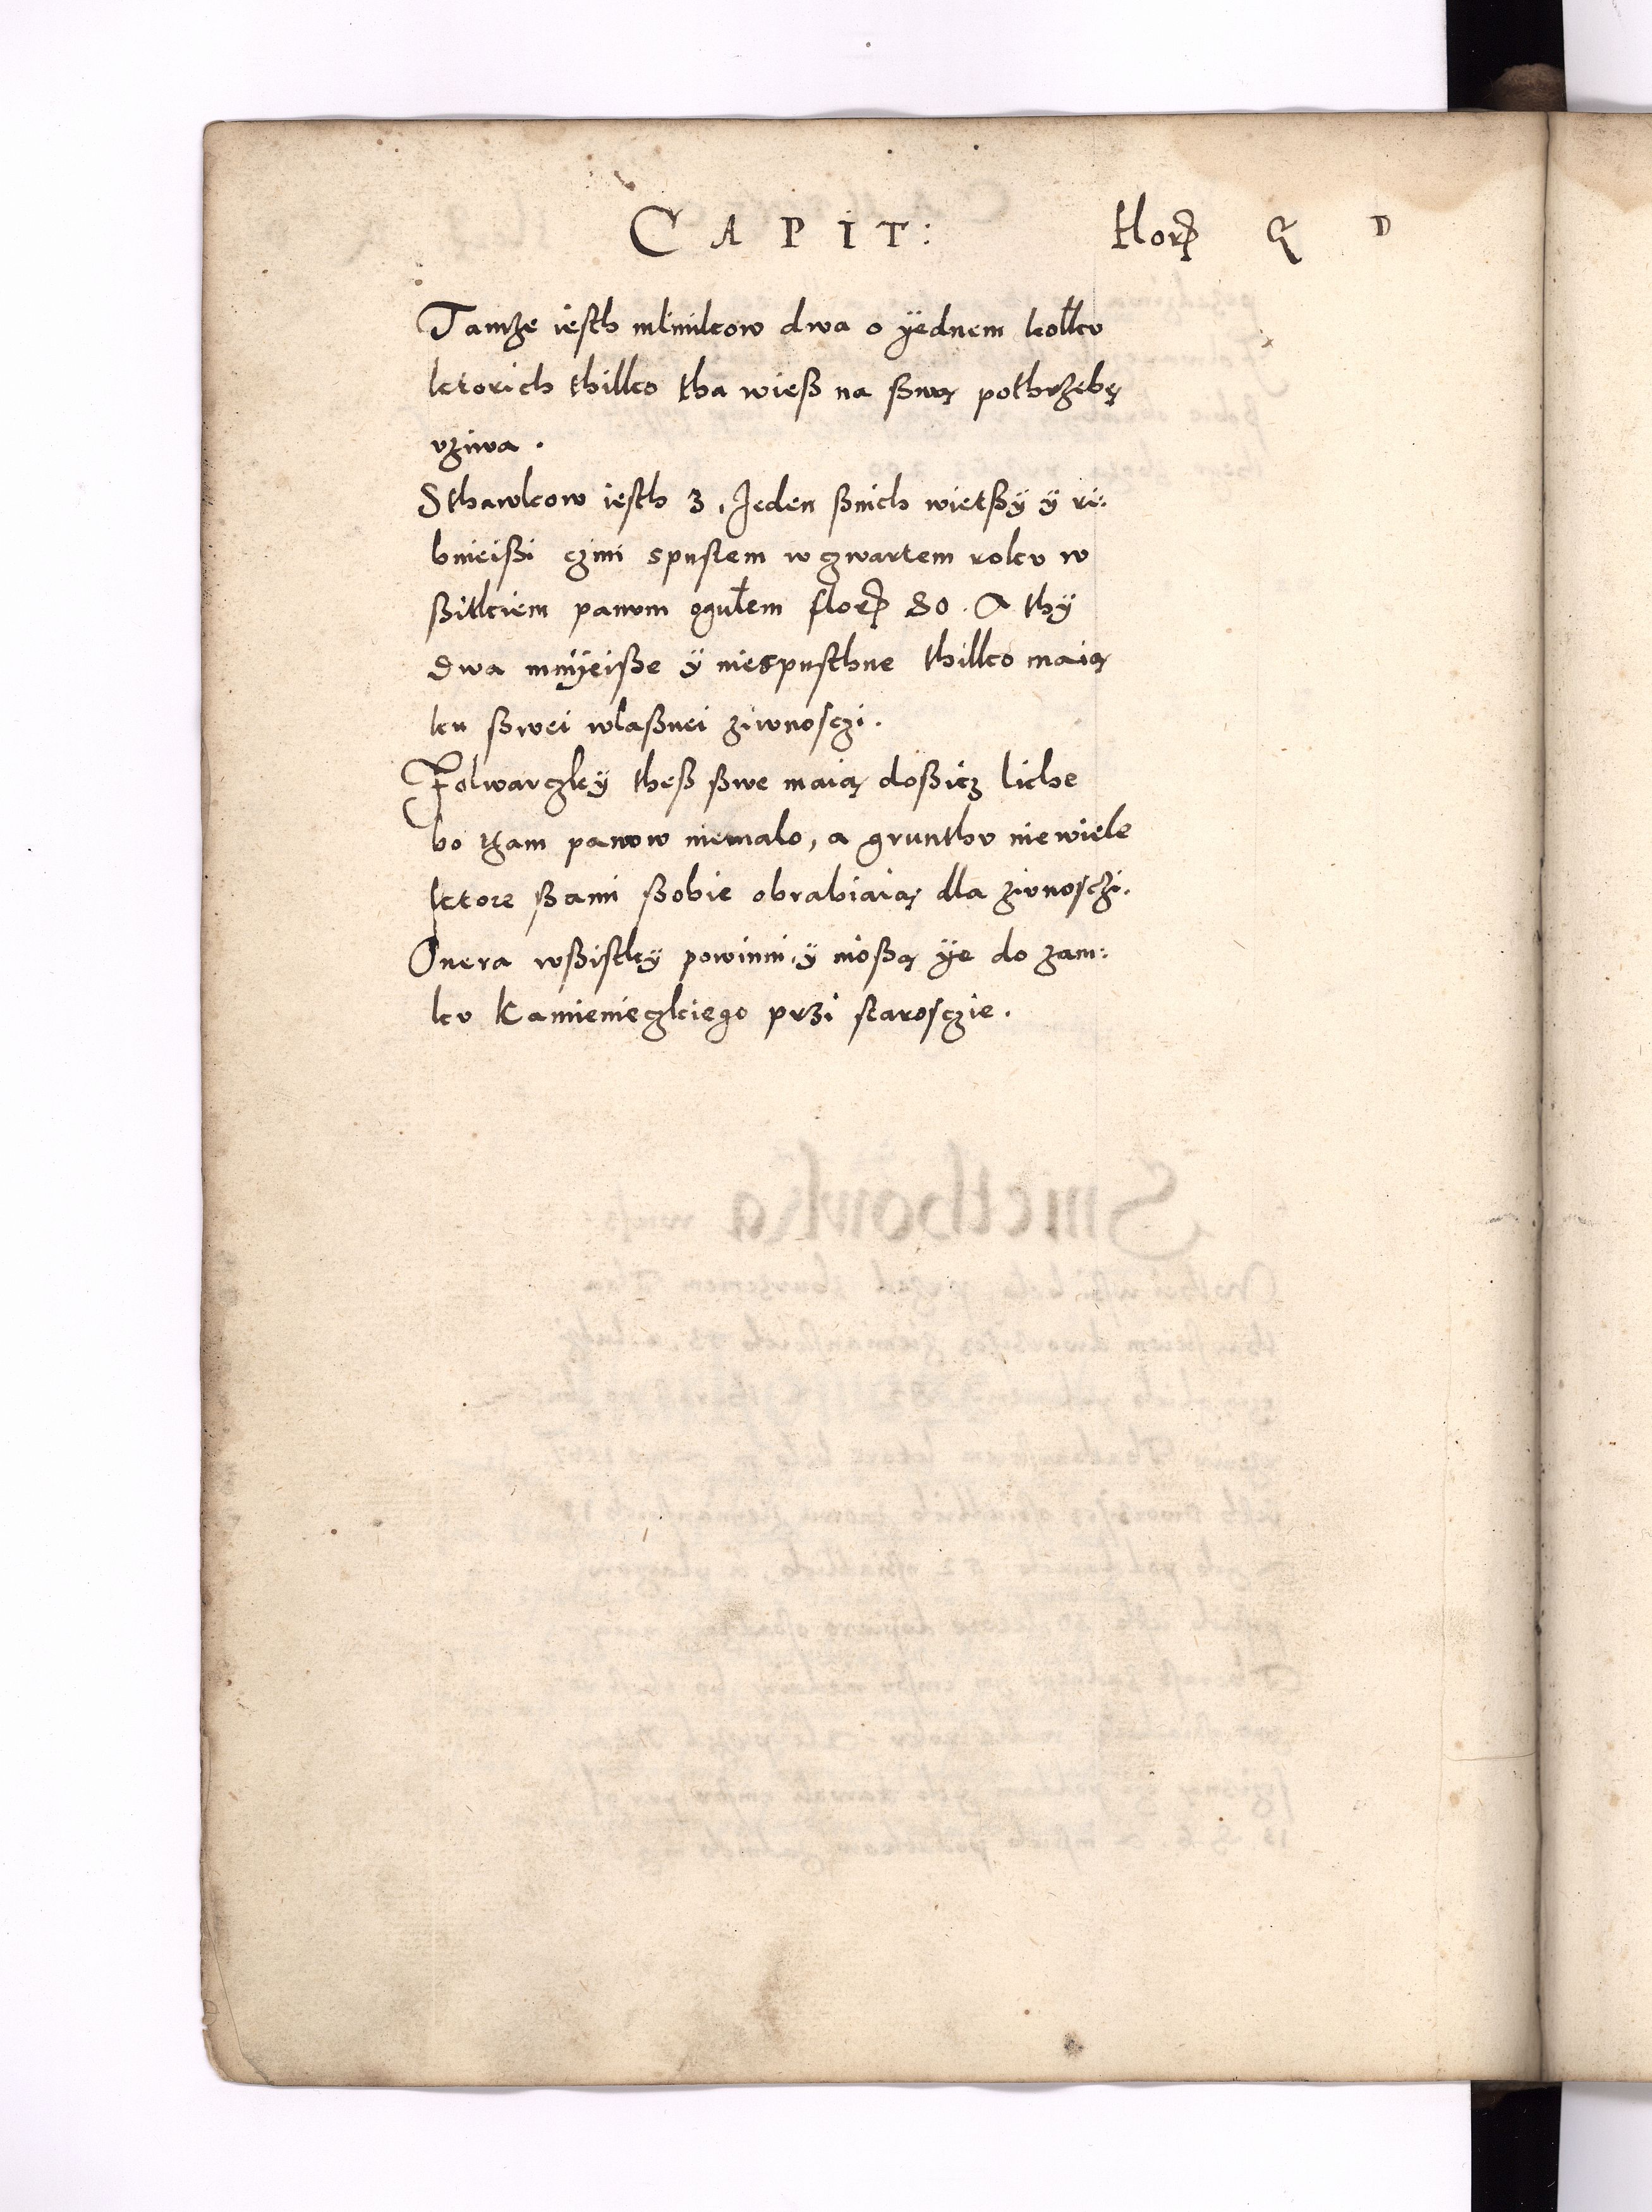 CAPIT: florꝭ G D
Tamże iesth mlinikow dwa o ÿednem kollkv
ktorich thilko tha wieß na ßwą pothrzebę
vziwa.
Sthawkow iesth 3, Jeden ßnich wietßÿ ÿ ri:
bnieißi czini spustem w czwartem rokv w
ßitkiem panom ogułem florꝭ 80. A thÿ
dwa mnÿeiße ÿ niespusthne thilko maią
ku ßwei wlaßnei ziwnosczi.
Folwarczkÿ theß ßwe maią doßicz liche
bo tham panow niemalo, a grunthv niewiele
ktore ßami ßobie obrabiaią dla zivnosczi.
Onera wßistkÿ powinni, ÿ nioßą ÿe do zam:
kv Kamienieczkiego przi starosczie.